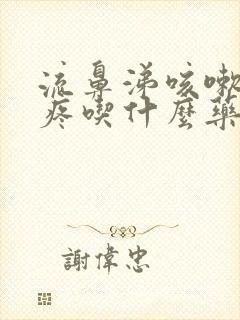 流鼻涕咳嗽
疼喫什麼藥
謝偉忠